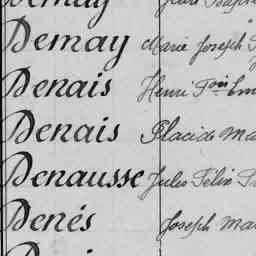 Demay Marie Joseph
Denais Henri Fois Em
Denais Placide Ma
Denausse Jules Félix
Denés Joseph Ma